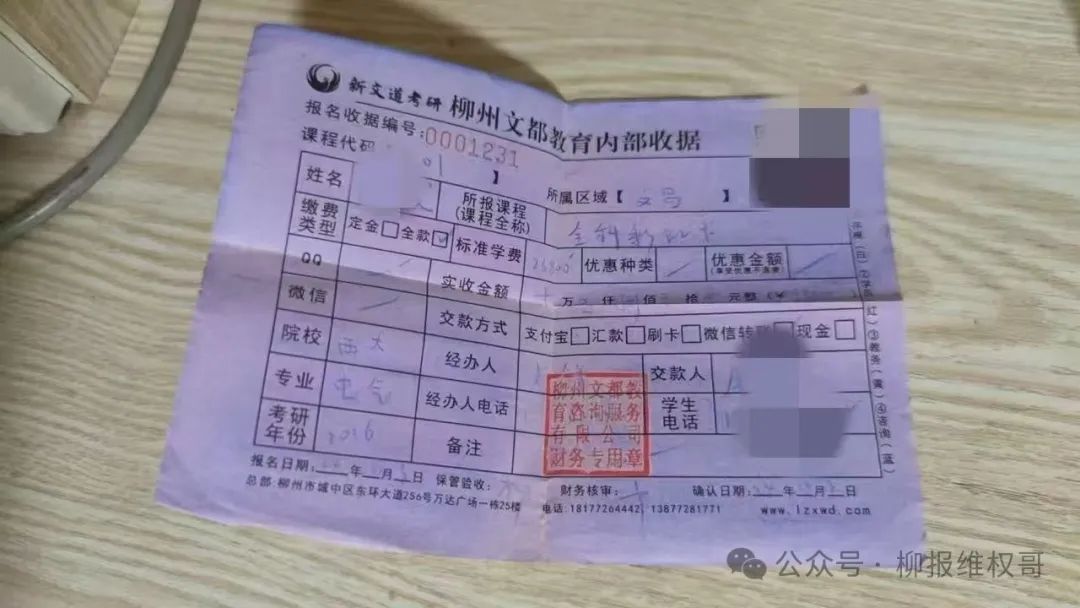 新文道考研 柳州文都教育内部收据
报名收据编号:0001231
课程代码 】 所属区域【 文昌 】
姓名 所报课程(课程全称)
缴费类型 定金 全款 标准学费 优惠种类 优惠金额(享受优惠不退费)
QQ 实收金额 万 仟 佰 拾 元整(¥
微信 交款方式 支付宝 汇款 刷卡 微信转账 现金
院校 西大 经办人 交款人
专业 电气 经办人电话 学生电话
考研年份 2026 备注
柳州文都教
育咨询服务
有限公司
财务专用章
报名日期: 年 月 日 保管验收: 财务核审: 确认日期: 年 月 日
总部:柳州市城中区东环大道256号万达广场一栋25楼 电话:18177264442 13877281771 www.lzxwd.com
公众号·柳报维权哥